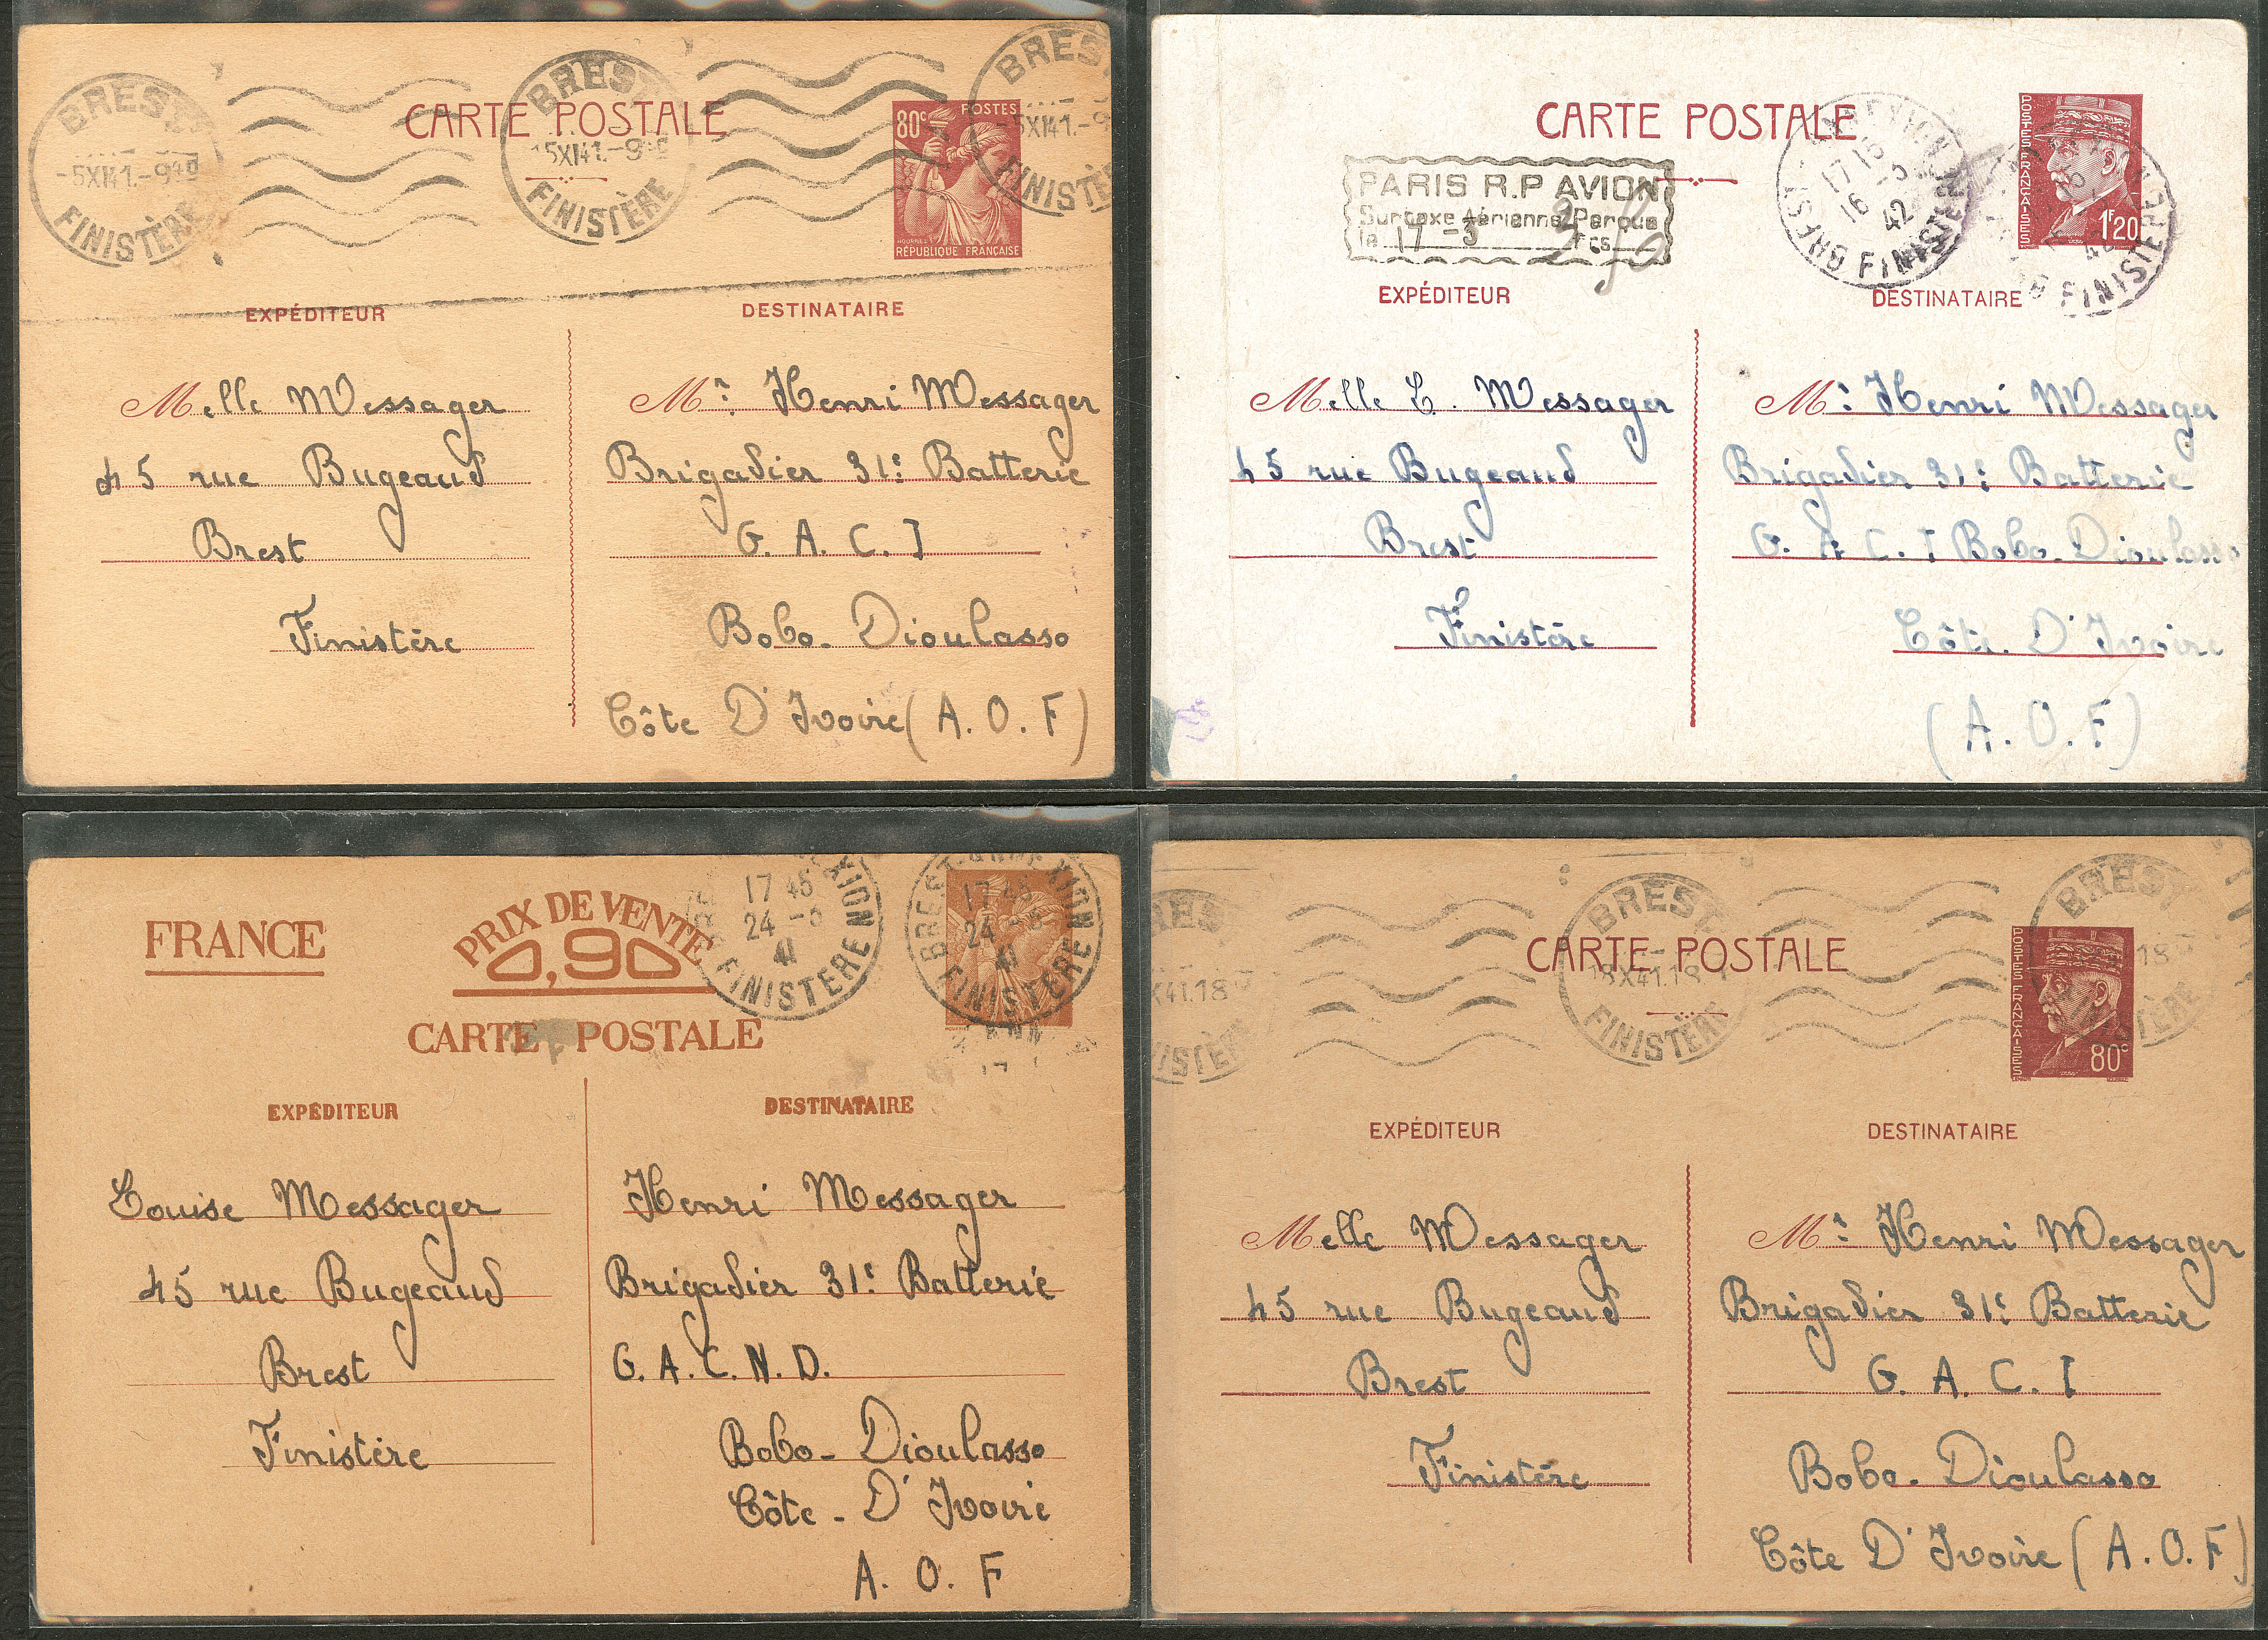 BREST
-5XI41.-9
FINISTÈRE
BREST
-5XI41.-9
FINISTÈRE
BREST
-5XI41.-9
FINISTÈRE
CARTE POSTALE
80c POSTES
RÉPUBLIQUE FRANÇAISE
EXPÉDITEUR
Melle Messager
45 rue Bugeaud
Brest
Finistère
DESTINATAIRE
Mr: Henri Messager
Brigadier 31e: Batterie
G. A. C. I
Bobo-Dioulasso
Côte D'Ivoire (A.O.F)
CARTE POSTALE
PARIS R.P AVION
Surtaxe Aérienne Perçue
le 17-3 Frs
17 15
16 -3
42
BREST FINISTERE
FINISTERE
POSTES FRANÇAISES
1F20
EXPÉDITEUR
Melle L. Messager
45 rue Bugeaud
Brest
Finistère
DESTINATAIRE
Mr: Henri Messager
Brigadier 31e: Batterie
G. A C. I Bobo-Dioulasso
Côte D'Ivoire
(A.O.F)
FRANCE
PRIX DE VENTE
0,90
CARTE POSTALE
17 45
24 -3
41
FINISTERE
BREST
17 45
24 -3
41
FINISTERE
EXPÉDITEUR
Louise Messager
45 rue Bugeaud
Brest
Finistère
DESTINATAIRE
Henri Messager
Brigadier 31e: Batterie
G.A.C.N.D.
Bobo-Dioulasso
Côte-D'Ivoire
A.O.F
CARTE POSTALE
X41.18
BREST
18X41.18
FINISTÈRE
BREST
18
POSTES FRANÇAISES
80c
EXPÉDITEUR
Melle Messager
45 rue Bugeaud
Brest
Finistère
DESTINATAIRE
Mr: Henri Messager
Brigadier 31e: Batterie
G. A. C. I
Bobo-Dioulasso
Côte D'Ivoire (A.O.F)